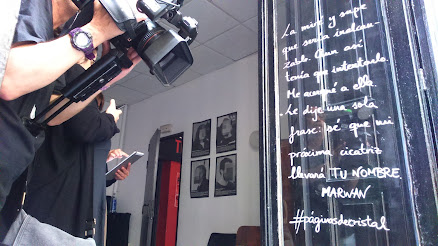 La miré y supe
que sería inalcan-
zable. Aun así
tenía que intentarlo.
Me acerqué a ella.
Le dije una sola
frase: sé que mi
próxima cicatriz
llevará TU NOMBRE.
MARWAN
#páginasdecristal